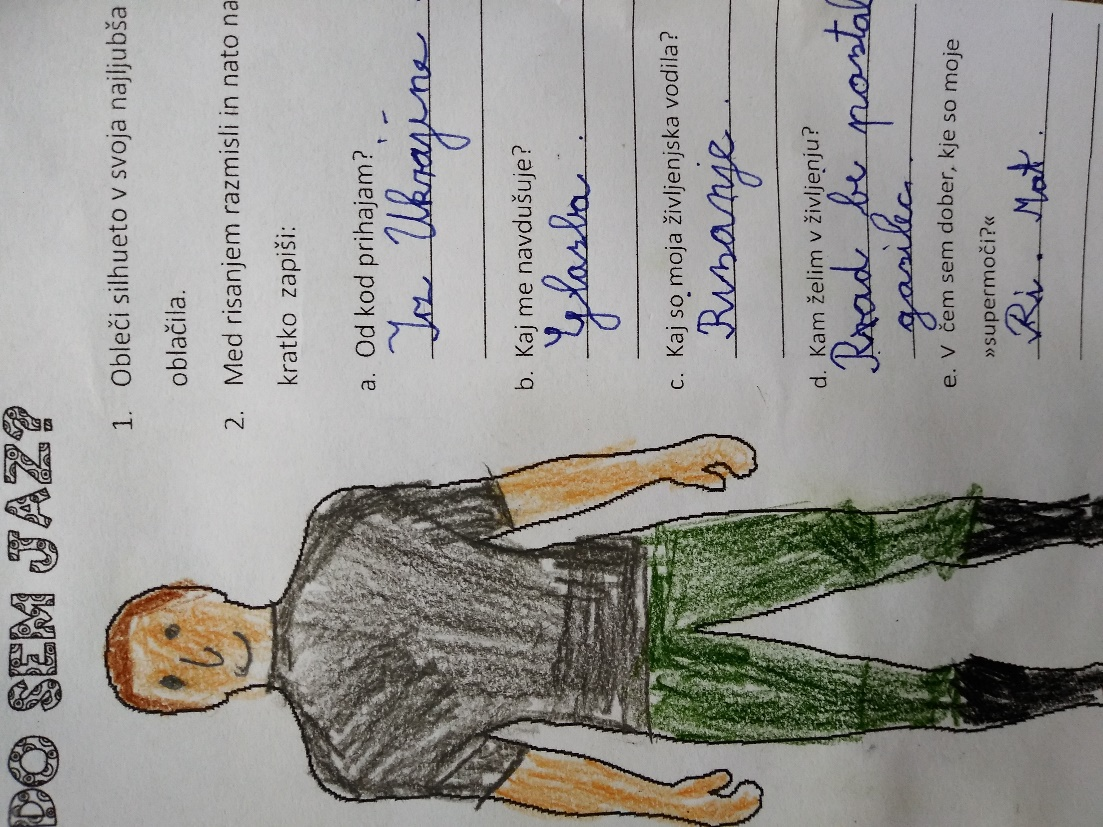 DO SEM JAZ?
1. Obleči silhueto v svoja najljubša
oblačila.
2. Med risanjem razmisli in nato na
kratko zapiši:
a. Od kod prihajam?
Iz Ukrajine.
b. Kaj me navdušuje?
Glasba.
c. Kaj so moja življenjska vodila?
Risanje.
d. Kam želim v življenju?
Rad be postal
gasilec
e. V čem sem dober, kje so moje
»supermoči?«
Ri. Mat.